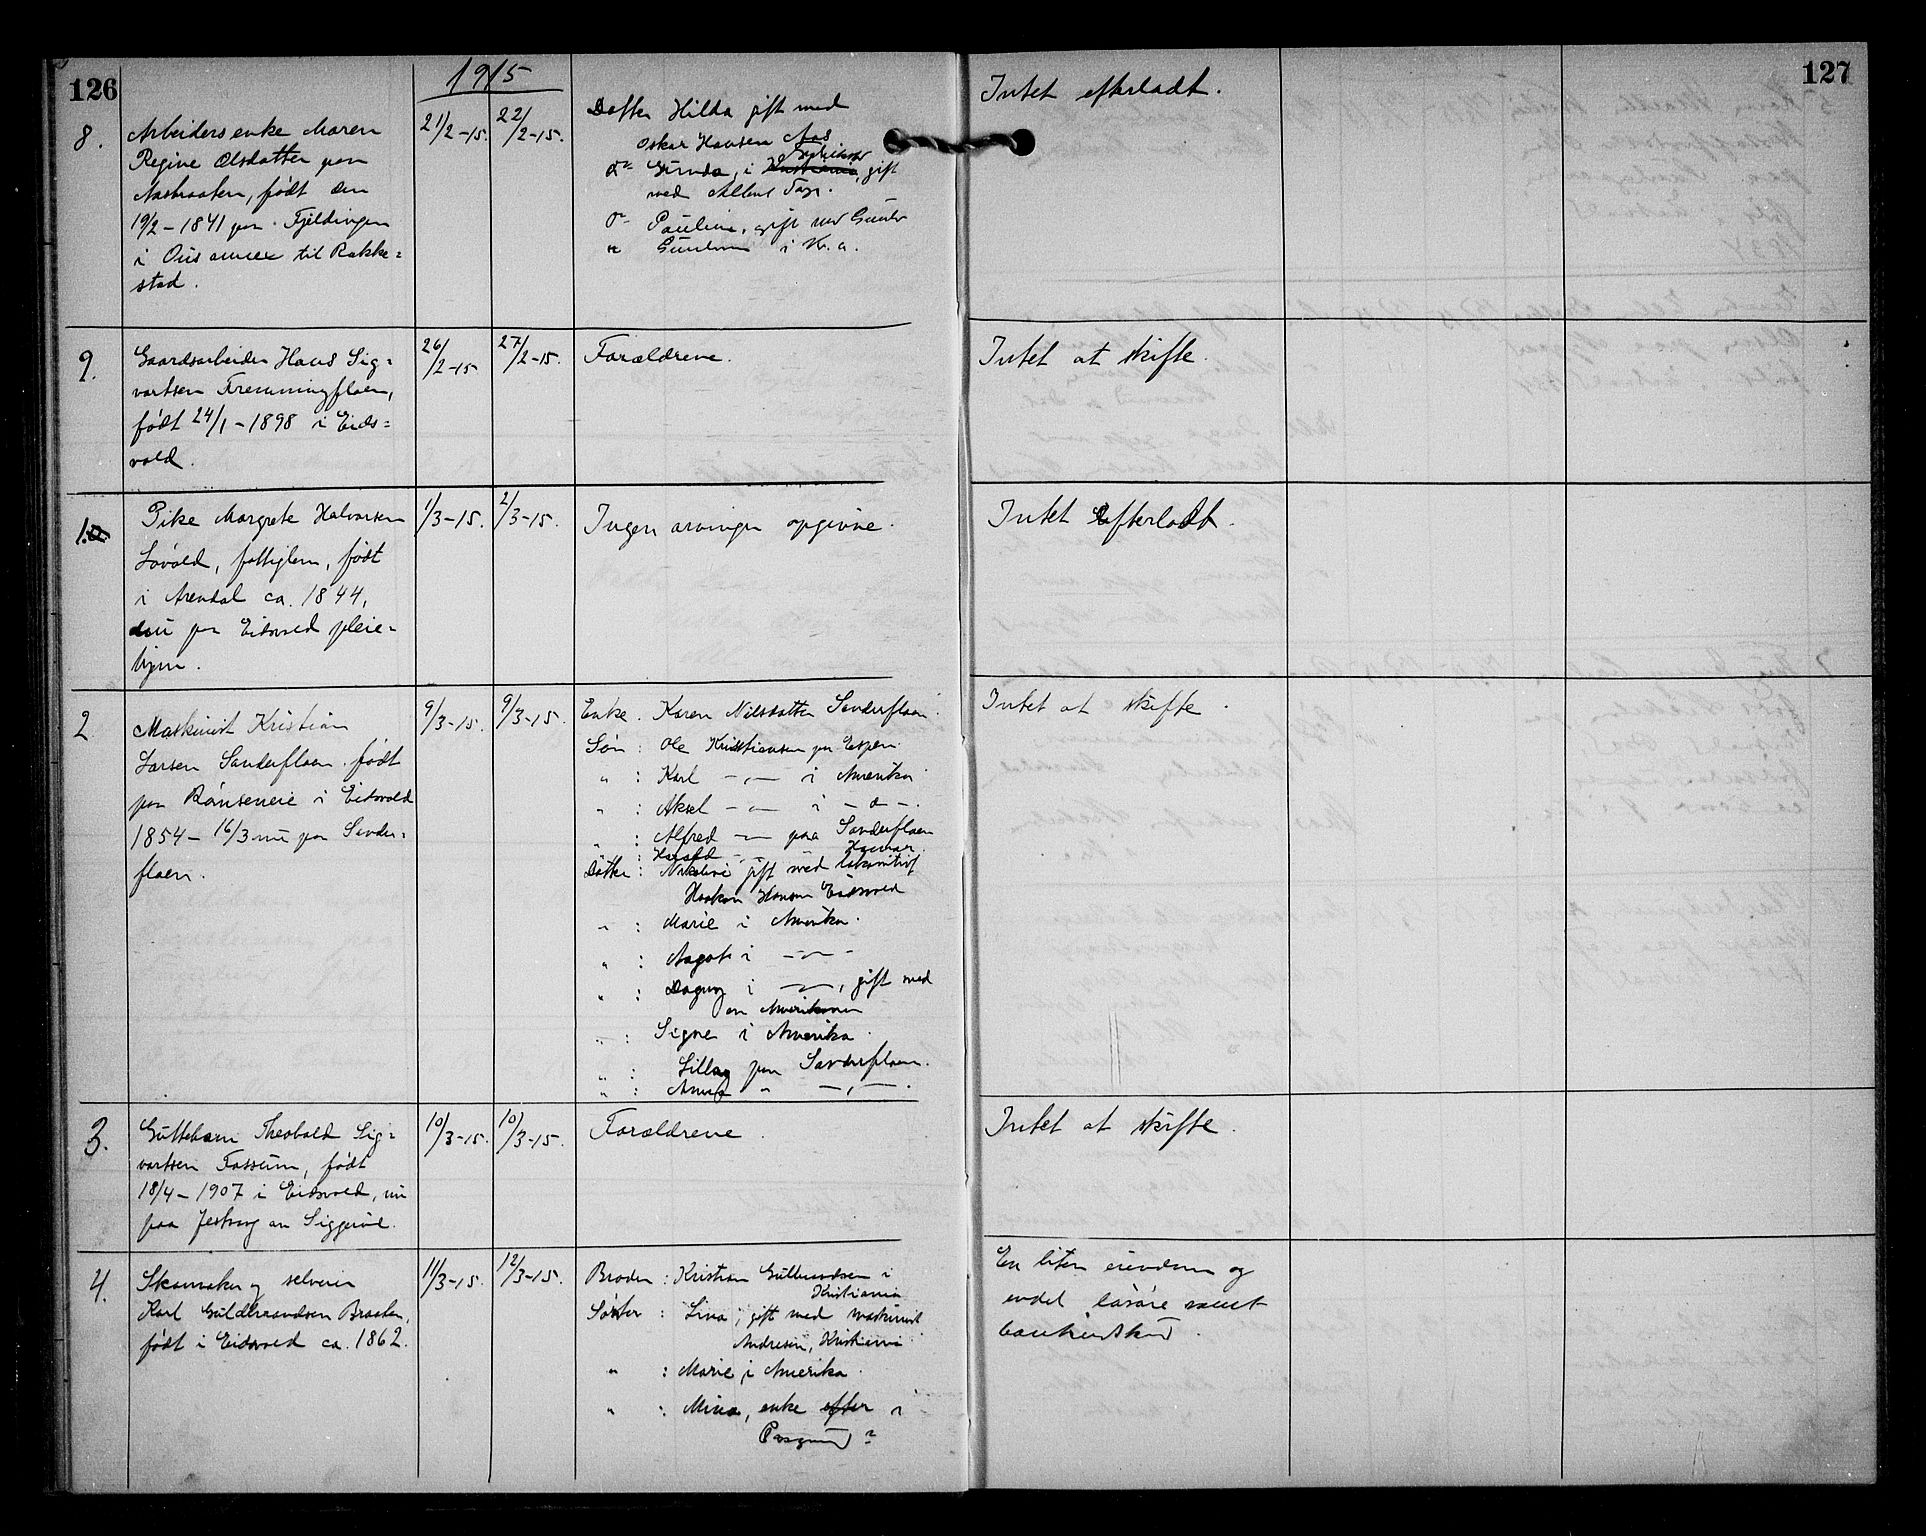 126
1915
127
8.
Arbeiders enke Maren
Regine Olsdatter paa
født den
19/2 – 1841 paa Fjeldingen
i Øus annex til Rakke=
stad.
21/2-15.
22/2-15.
Datter Hilda gift med
Oskar Hansen Aas
do Gunda, i Kristiania, gift
med
do Pauline, gift med
i Kr.a.
Intet efterladt.
9.
Gaardsarbeider Hans Sig=
vartsen Fremmingfloen,
født 24/1 – 1898 i Eids=
vold.
26/2-15
27/2-15.
Forældrene.
Intet at skifte.
1.
Pike Margrete Halvorsen
Løvold, fattiglem, født
i Arendal ca. 1844,
nu paa Eidsvold pleie-
hjem.
1/3-15.
2/3-15.
Ingen arvinger opgivne.
Intet efterladt.
2
Maskinist Kristian
Larsen Sanderfloen. født
paa Rønseneie i Eidsvold
1854 – 16/3 nu paa Sander=
floen.
9/3-15.
9/3-15.
Enke. Karen Nilsdatter Sanderfloen.
Søn : Ole Kristiansen paa Espen.
" : Karl —"— i Amerika.
" : Aksel —"— i — d — .
" : Alfred —"— paa Sanderfloen
" : Harald —"— Hamar.
Datter : Nikoline gift med lokomotivf
Haakon Hansen Eidsvold
" : Marie i Amerika.
" : Aagot i —"—
" : Dagny i —"—, gift med
en Amerikaner
" : Signe i Amerika.
" : Lilly paa Sanderfloen.
" : " —"—.
Intet at skifte.
3.
Guttebarn Theobald Sig=
vartsen Fossum, født
18/4 – 1907 i Eidsvold, nu
paa
10/3-15.
10/3-15.
Forældrene.
Intet at skifte.
4.
Skomaker og selveier
Karl Guldbrandsen Braaten,
født i Eidsvold ca. 1862.
11/3-15.
12/3-15.
Broder : Kristian Gulbrandsen i
Kristiania
Søster : Lina, gift med maskinist
Andresen, Kristiania
" : Marie, i Amerika.
" : Mina, enke efter i
Porsgrund ?
En liten eiendom og
endel løsøre samt
bankindskud.